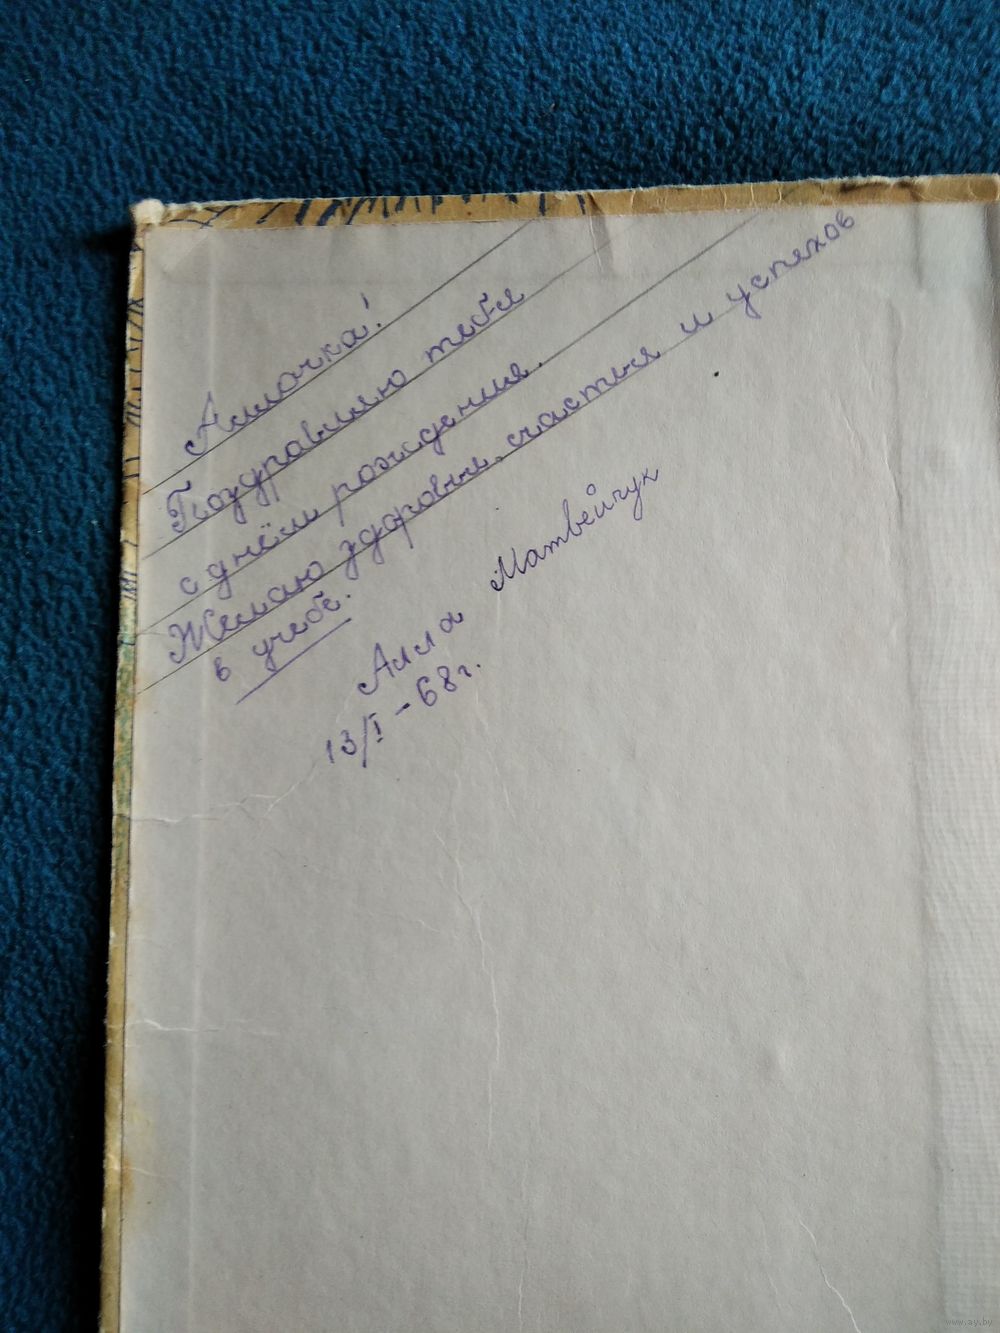 Аллочка!
Поздравляю тебя
с днём рождения.
Желаю здоровья, счастья и успехов
в учёбе.
Алла Матвейчук
13/I-68г.
www.ay.by